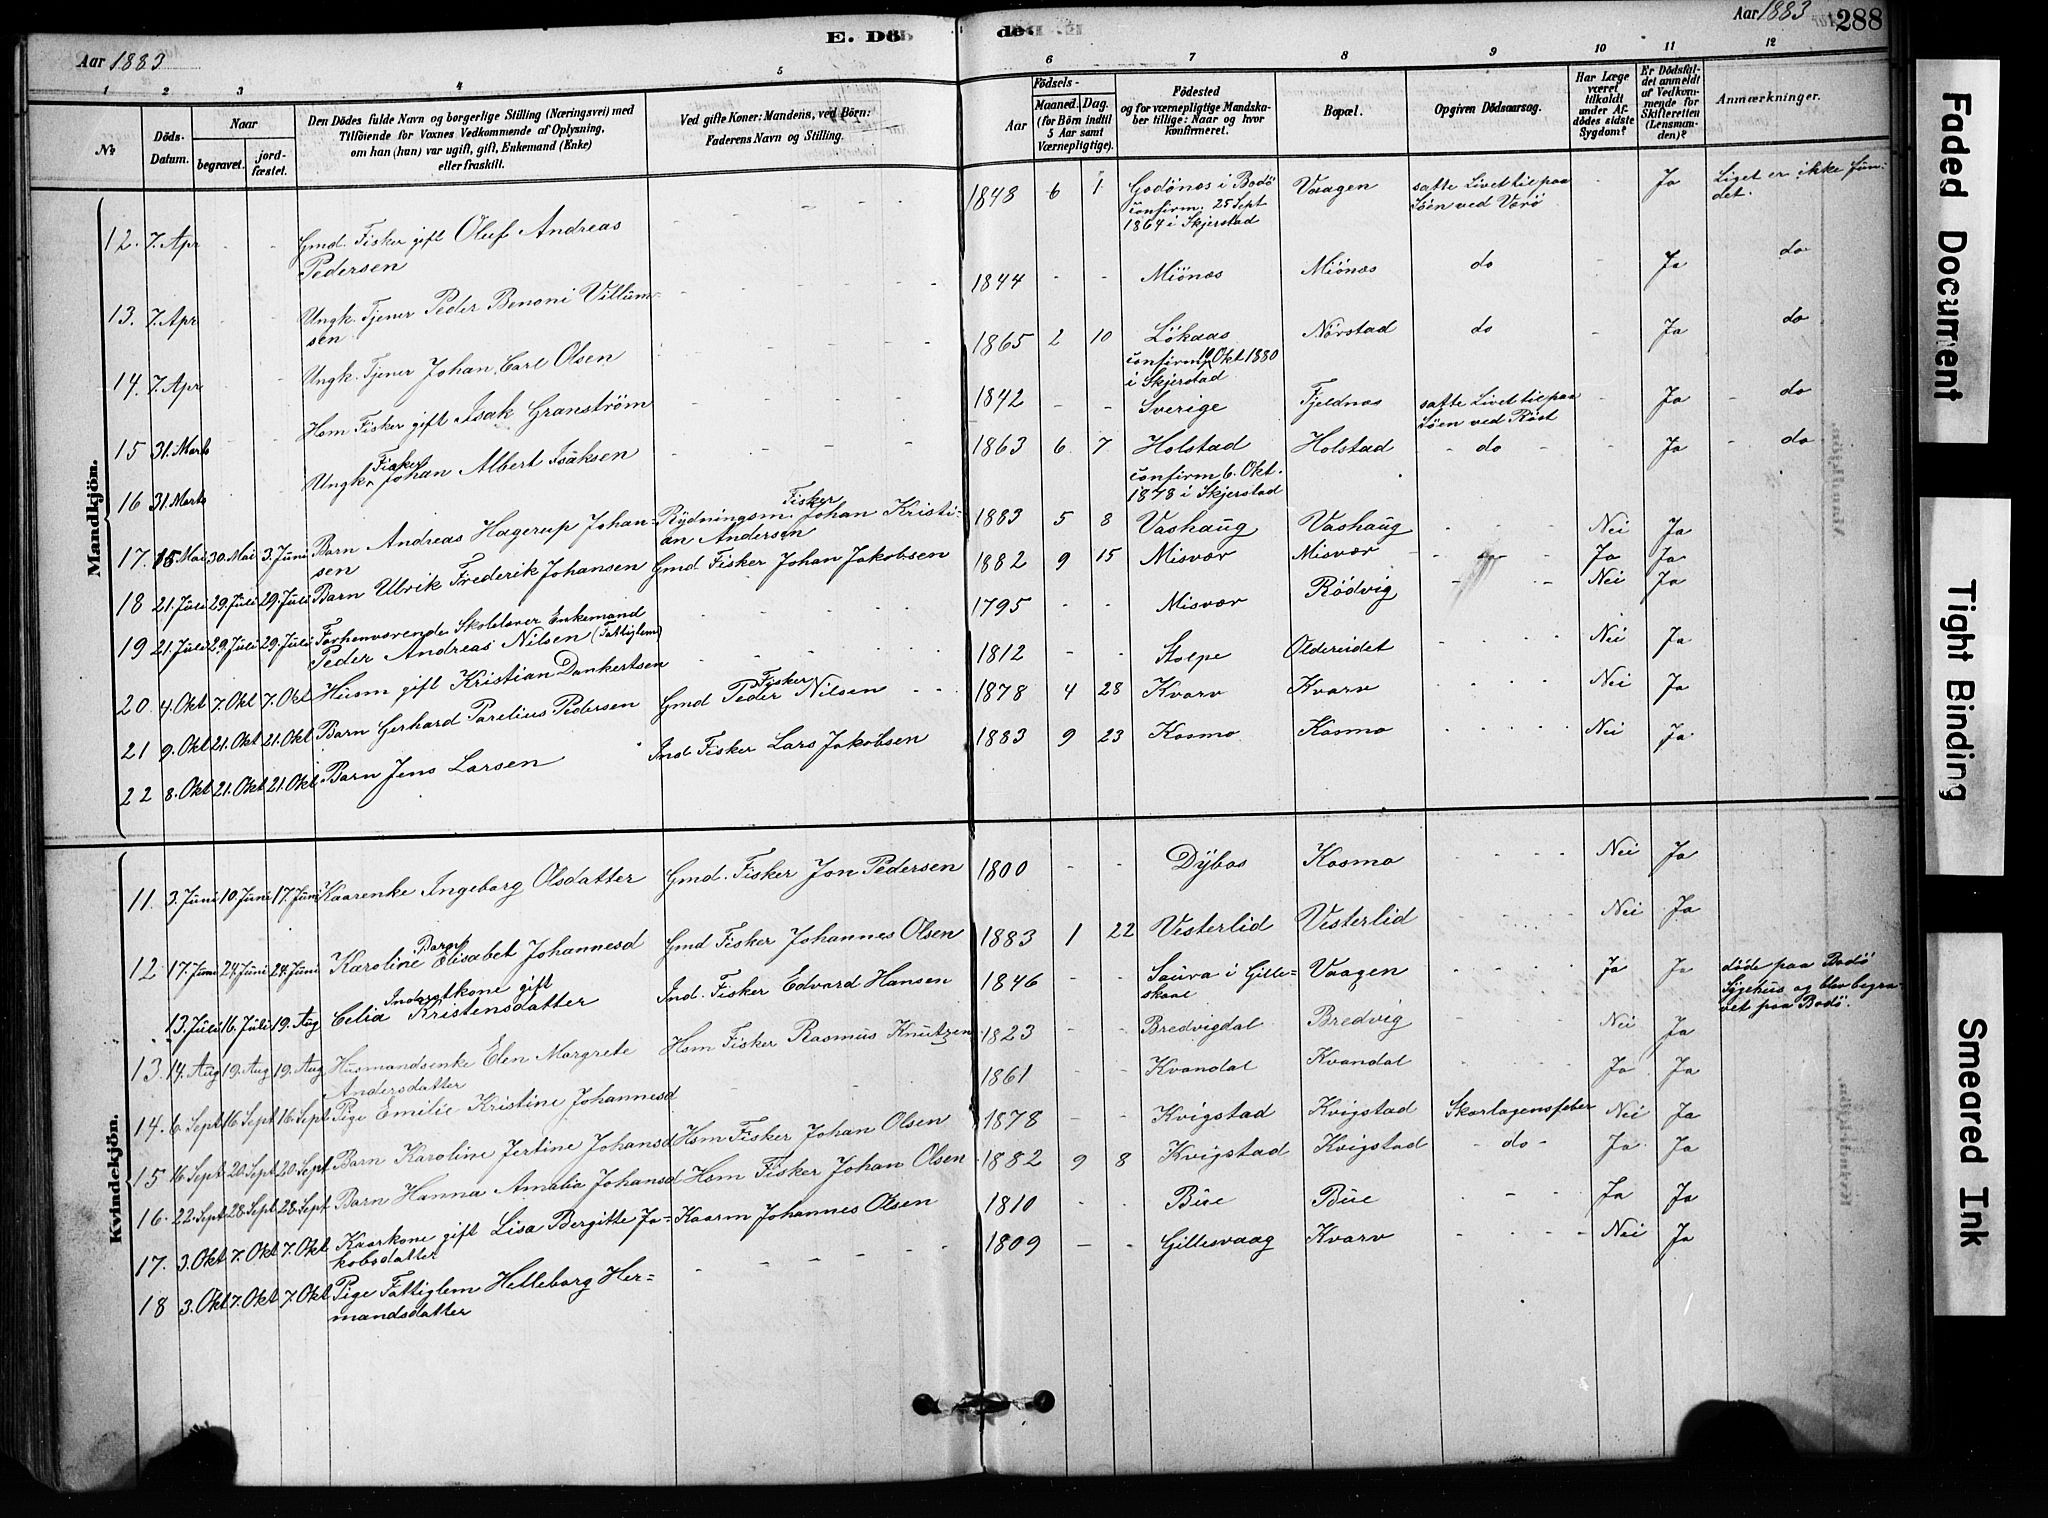 Aar 1883
E. Dö
de
Aar 1883
288
1 2 3 4 5 6 7 8 9 10 11 12
№
Döds-Datum.
Naar
begravet.
jord-fæstet.
Den Dödes fulde Navn og borgerlige Stilling (Næringsvei) med
Tilföiende for Voxnes Vedkommende af Oplysning,
om han (hun) var ugift, gift, Enkemand (Enke)
eller fraskilt.
Ved gifte Koner: Mandens, ved Börn:
Faderens Navn og Stilling.
Födsels-
Aar
Maaned. Dag.
(for Börn indtil
5 Aar samt
Værnepligtige).
Födested
og for værnepligtige Mandska-
ber tillige: Naar og hvor
konfirmeret.
Bopæl.
Opgiven Dödsaarsag.
Har Læge
været
tilkaldt
under Af-
dödes sidste
Sygdom?
Er Dödsfal-
det anmeldt
af Vedkom-
mende for
Skifteretten
(Lensman-
den)?
Anmærkninger.
Mandkjön.
12. 7. Apr - - Gmd. Fisker gift Oluf Andreas
Pedersen
1848 6 1 Godönes i Bodö Vaagen satte Livet til paa - Ja Liget er ikke fun-
confirm. 25 Sept Söen ved Værö det.
1864 i Skjerstad
13. 7. Apr - - Ungk. Tjener Peder Benoni Villum-
sen
1844 - - Miönes Miönes do - Ja do
14. 7. Apr Ungk. Tjener Johan Carl Olsen
1865 2 10 Lökaas Nörstad do - Ja do
confirm 10 Okt 1880
i Skjerstad
15 31. Marts Hsm Fisker gift Isak Granström
1842 - - Sverige Fjeldnes satte Livet til paa - Ja - do
Söen ved Röst
16 31. Marts Ungk. Fisker Johan Albert Isaksen
1863 6 7 Holstad Holstad - do - - Ja - do
confirm 6. Okt.
1878 i Skjerstad
17. 15 Mai 30. Mai 3. Juni Barn Andreas Hagerup Johan- Rydningsm. Fisker Johan Kristi-
sen an Andersen
1883 5 8 Vashaug Vashaug - - - Nei Ja
18 21. Juli 29. Juli 29. Juli Barn Ulrik Frederik Johansen Gmd Fisker Johan Jakobsen
1882 9 15 Misvær Misvær - - - Ja Ja
19 21. Juli 29. Juli 29. Juli Forhenværende Skolelærer Enkemand
Peder Andreas Nilsen (Fattiglem)
1795 - - Misvær Rödvig - - - Nei Ja
20. 4. Okt 7. Okt 7. Okt Husm gift Kristian Dankertsen
1812 - - Stolpe Oldereidet - - - Nei Ja
21 9. Okt 21. Okt 21. Okt Barn Gerhard Parelius Pedersen Gmd Fisker Peder Nilsen - -
1878 4 28 Kvarv Kvarv - - - Nei Ja
22 8. Okt 21. Okt 21. Okt Barn Jens Larsen Ind Fisker Lars Jakobsen
1883 9 23 Kosmo Kosmo - - - Nei Ja
Kvindekjön.
11. 3. Juni 10. Juni 17. Juni Kaarenke Ingeborg Olsdatter Gmd. Fisker Jon Pedersen
1800 - - Dybos Kosmo - - - Nei Ja
12 17. Juni 24. Juni 24. Juni Barn Karoline Elisabet Johannesd Gmd Fisker Johannes Olsen
1883 1 22 Vesterlid Vesterlid - - - Nei Ja
13. Juli 16. Juli 19. Aug Inderstkone gift
Celia Kristensdatter Ind. Fisker Edvard Hansen
1846 - - Saura i Gille- Vaagen - - - Ja Ja döde paa Bodö
skaal Sygehus og blev begra-
vet paa Bodö.
13. 14. Aug 19. Aug 19. Aug Husmandsenke Elen Margrete Hsm Fisker Rasmus Knutzen
Andersdatter
1823 - - Bredvigdal Bredvig - - - Nei Ja
14. 6. Sept 16. Sept 16. Sept Pige Emilie Kristine Johannesd
1861 - - Kvandal Kvandal - - - Ja Ja
15 16. Sept 20. Sept 20. Sept Barn Karoline Jertine Johansd Hsm Fisker Johan Olsen
1878 - - Kvigstad Kvigstad Skarlagensfeber Nei Ja
16. 22. Sept 28. Sept 28. Sept Barn Hanna Amalia Johansd Hsm Fisker Johan Olsen
1882 9 8 Kvigstad Kvigstad - do - Ja Ja
17. 3. Okt 7. Okt 7. Okt Kaarkone gift Lisa Bergitte Ja- Kaarm Johannes Olsen
kobsdatter
1810 - Bue Bue - - - Ja Ja
18 3. Okt 7. Okt 7. Okt Pige Fattiglem Helleborg Her-
mandsdatter
1809 - - Gillesvaag Kvarv - - - Nei Ja
Faded Document
Tight Binding
Smeared Ink